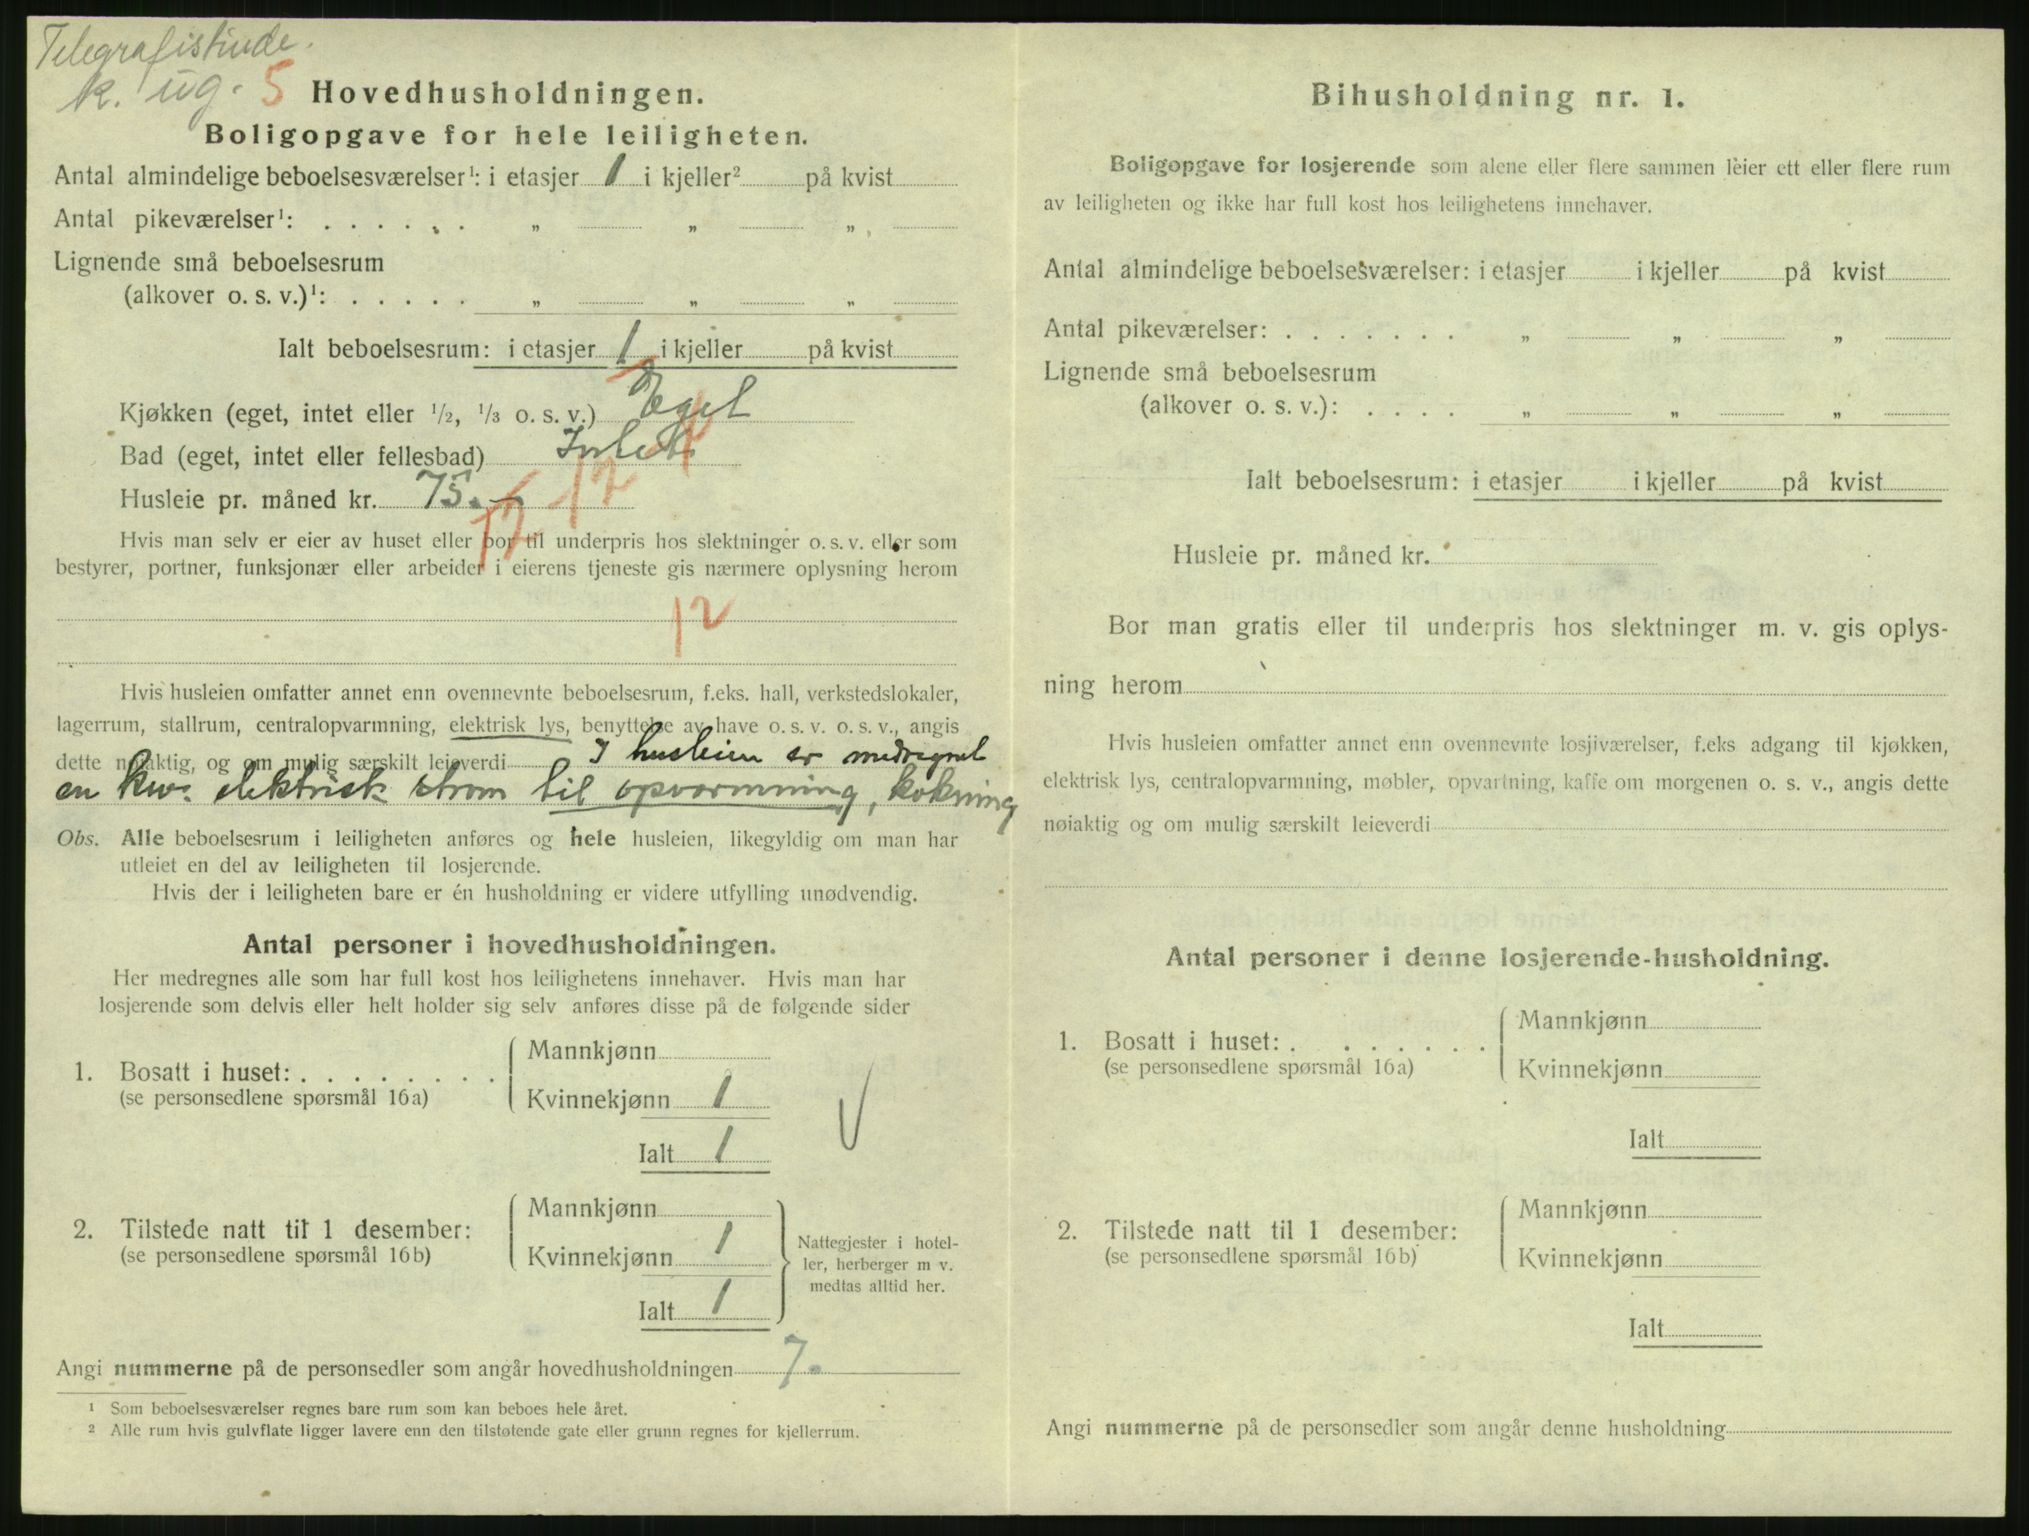 Telegrafistinde.
k. ug. 5
Hovedhusholdningen.
Boligopgave for hele leiligheten.
Antal almindelige beboelsesværelser¹: i etasjer 1 i kjeller² på kvist
Antal pikeværelser¹: . . . . . . „ „ „
Lignende små beboelsesrum
(alkover o. s. v.)¹: . . . . . „ „ „
Ialt beboelsesrum: i etasjer 1 i kjeller på kvist
Kjøkken (eget, intet eller 1/2, 1/3 o. s. v.) Eget
Bad (eget, intet eller fellesbad) Intet
Husleie pr. måned kr. 75.-
12
Hvis man selv er eier av huset eller bor til underpris hos slektninger o. s. v. eller som
bestyrer, portner, funksjonær eller arbeider i eierens tjeneste gis nærmere oplysning herom
12
Hvis husleien omfatter annet enn ovennevnte beboelsesrum, f.eks. hall, verkstedslokaler,
lagerrum, stallrum, centralopvarmning, elektrisk lys, benyttelse av have o. s. v. o. s. v., angis
dette nøiaktig, og om mulig særskilt leieverdi I husleien er medregnet
en kw. elektrisk strøm til opvarmning, kokning
Obs. Alle beboelsesrum i leiligheten anføres og hele husleien, likegyldig om man har
utleiet en del av leiligheten til losjerende.
Hvis der i leiligheten bare er én husholdning er videre utfylling unødvendig.
Antal personer i hovedhusholdningen.
Her medregnes alle som har full kost hos leilighetens innehaver. Hvis man har
losjerende som delvis eller helt holder sig selv anføres disse på de følgende sider
Mannkjønn
1. Bosatt i huset: . . . . . . . .
(se personsedlene spørsmål 16a)
Kvinnekjønn 1
Ialt 1
Mannkjønn
2. Tilstede natt til 1 desember:
(se personsedlene spørsmål 16b)
Kvinnekjønn 1
Ialt 1
Nattegjester i hotel-
ler, herberger m v.
medtas alltid her.
Angi nummerne på de personsedler som angår hovedhusholdningen 7.
¹ Som beboelsesværelser regnes bare rum som kan beboes hele året.
² Alle rum hvis gulvflate ligger lavere enn den tilstøtende gate eller grunn regnes for kjellerrum.
Bihusholdning nr. 1.
Boligopgave for losjerende som alene eller flere sammen leier ett eller flere rum
av leiligheten og ikke har full kost hos leilighetens innehaver.
Antal almindelige beboelsesværelser: i etasjer i kjeller på kvist
Antal pikeværelser: . . . . . . . „ „ „
Lignende små beboelsesrum
(alkover o. s. v.): . . . . „ „ „
Ialt beboelsesrum: i etasjer i kjeller på kvist
Husleie pr. måned kr.
Bor man gratis eller til underpris hos slektninger m. v. gis oplys-
ning herom
Hvis husleien omfatter annet enn ovennevnte losjiværelser, f.eks adgang til kjøkken,
elektrisk lys, centralopvarmning, møbler, opvartning, kaffe om morgenen o. s. v., angis dette
nøiaktig og om mulig særskilt leieverdi
Antal personer i denne losjerende-husholdning.
Mannkjønn
1. Bosatt i huset: . . . . . . .
(se personsedlene spørsmål 16a)
Kvinnekjønn
Ialt
Mannkjønn
2. Tilstede natt til 1 desember:
(se personsedlene spørsmål 16b)
Kvinnekjønn
Ialt
Angi nummerne på de personsedler som angår denne husholdning